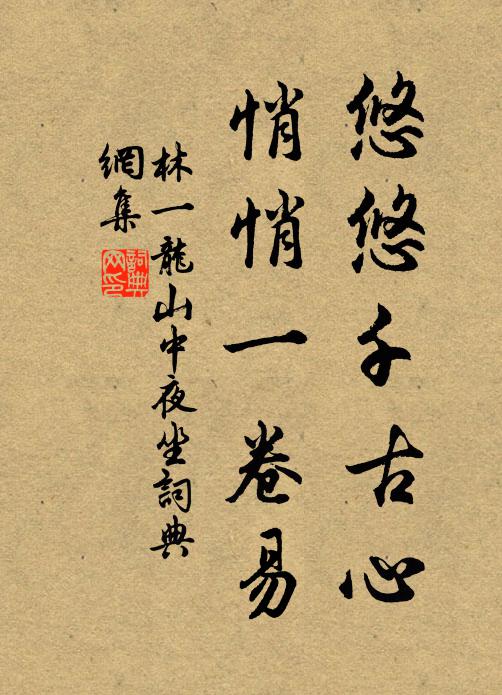 悠悠千古心
悄悄一卷易
林一龍山中夜坐詞典
網集
詞典
网印